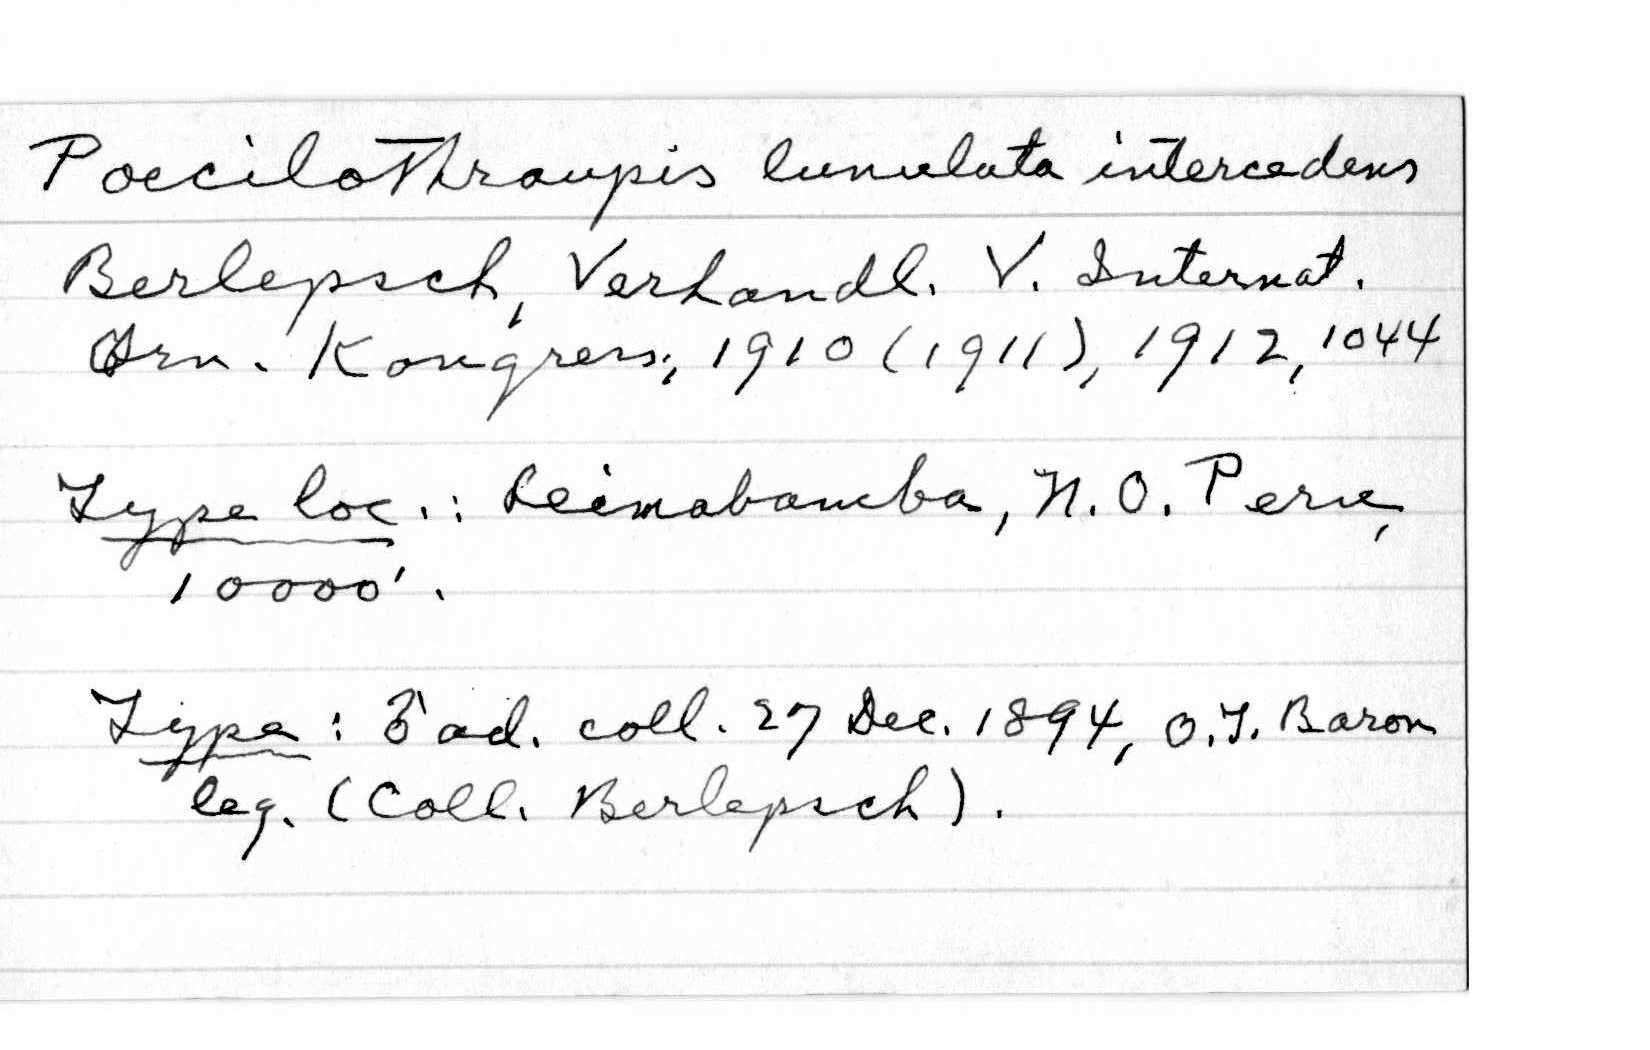 Poecilothraupis lunulata intercedens
Berlepsch, Verhandl. V. Internat.
Orn. Kongress, 1910 (1911), 1912, 1044
Type loc.: Leimabamba, N.O. Peru,
10000'.
Type: ♂ ad. coll. 27 Dec. 1894, O.T. Baron
leg. (Coll. Berlepsch).